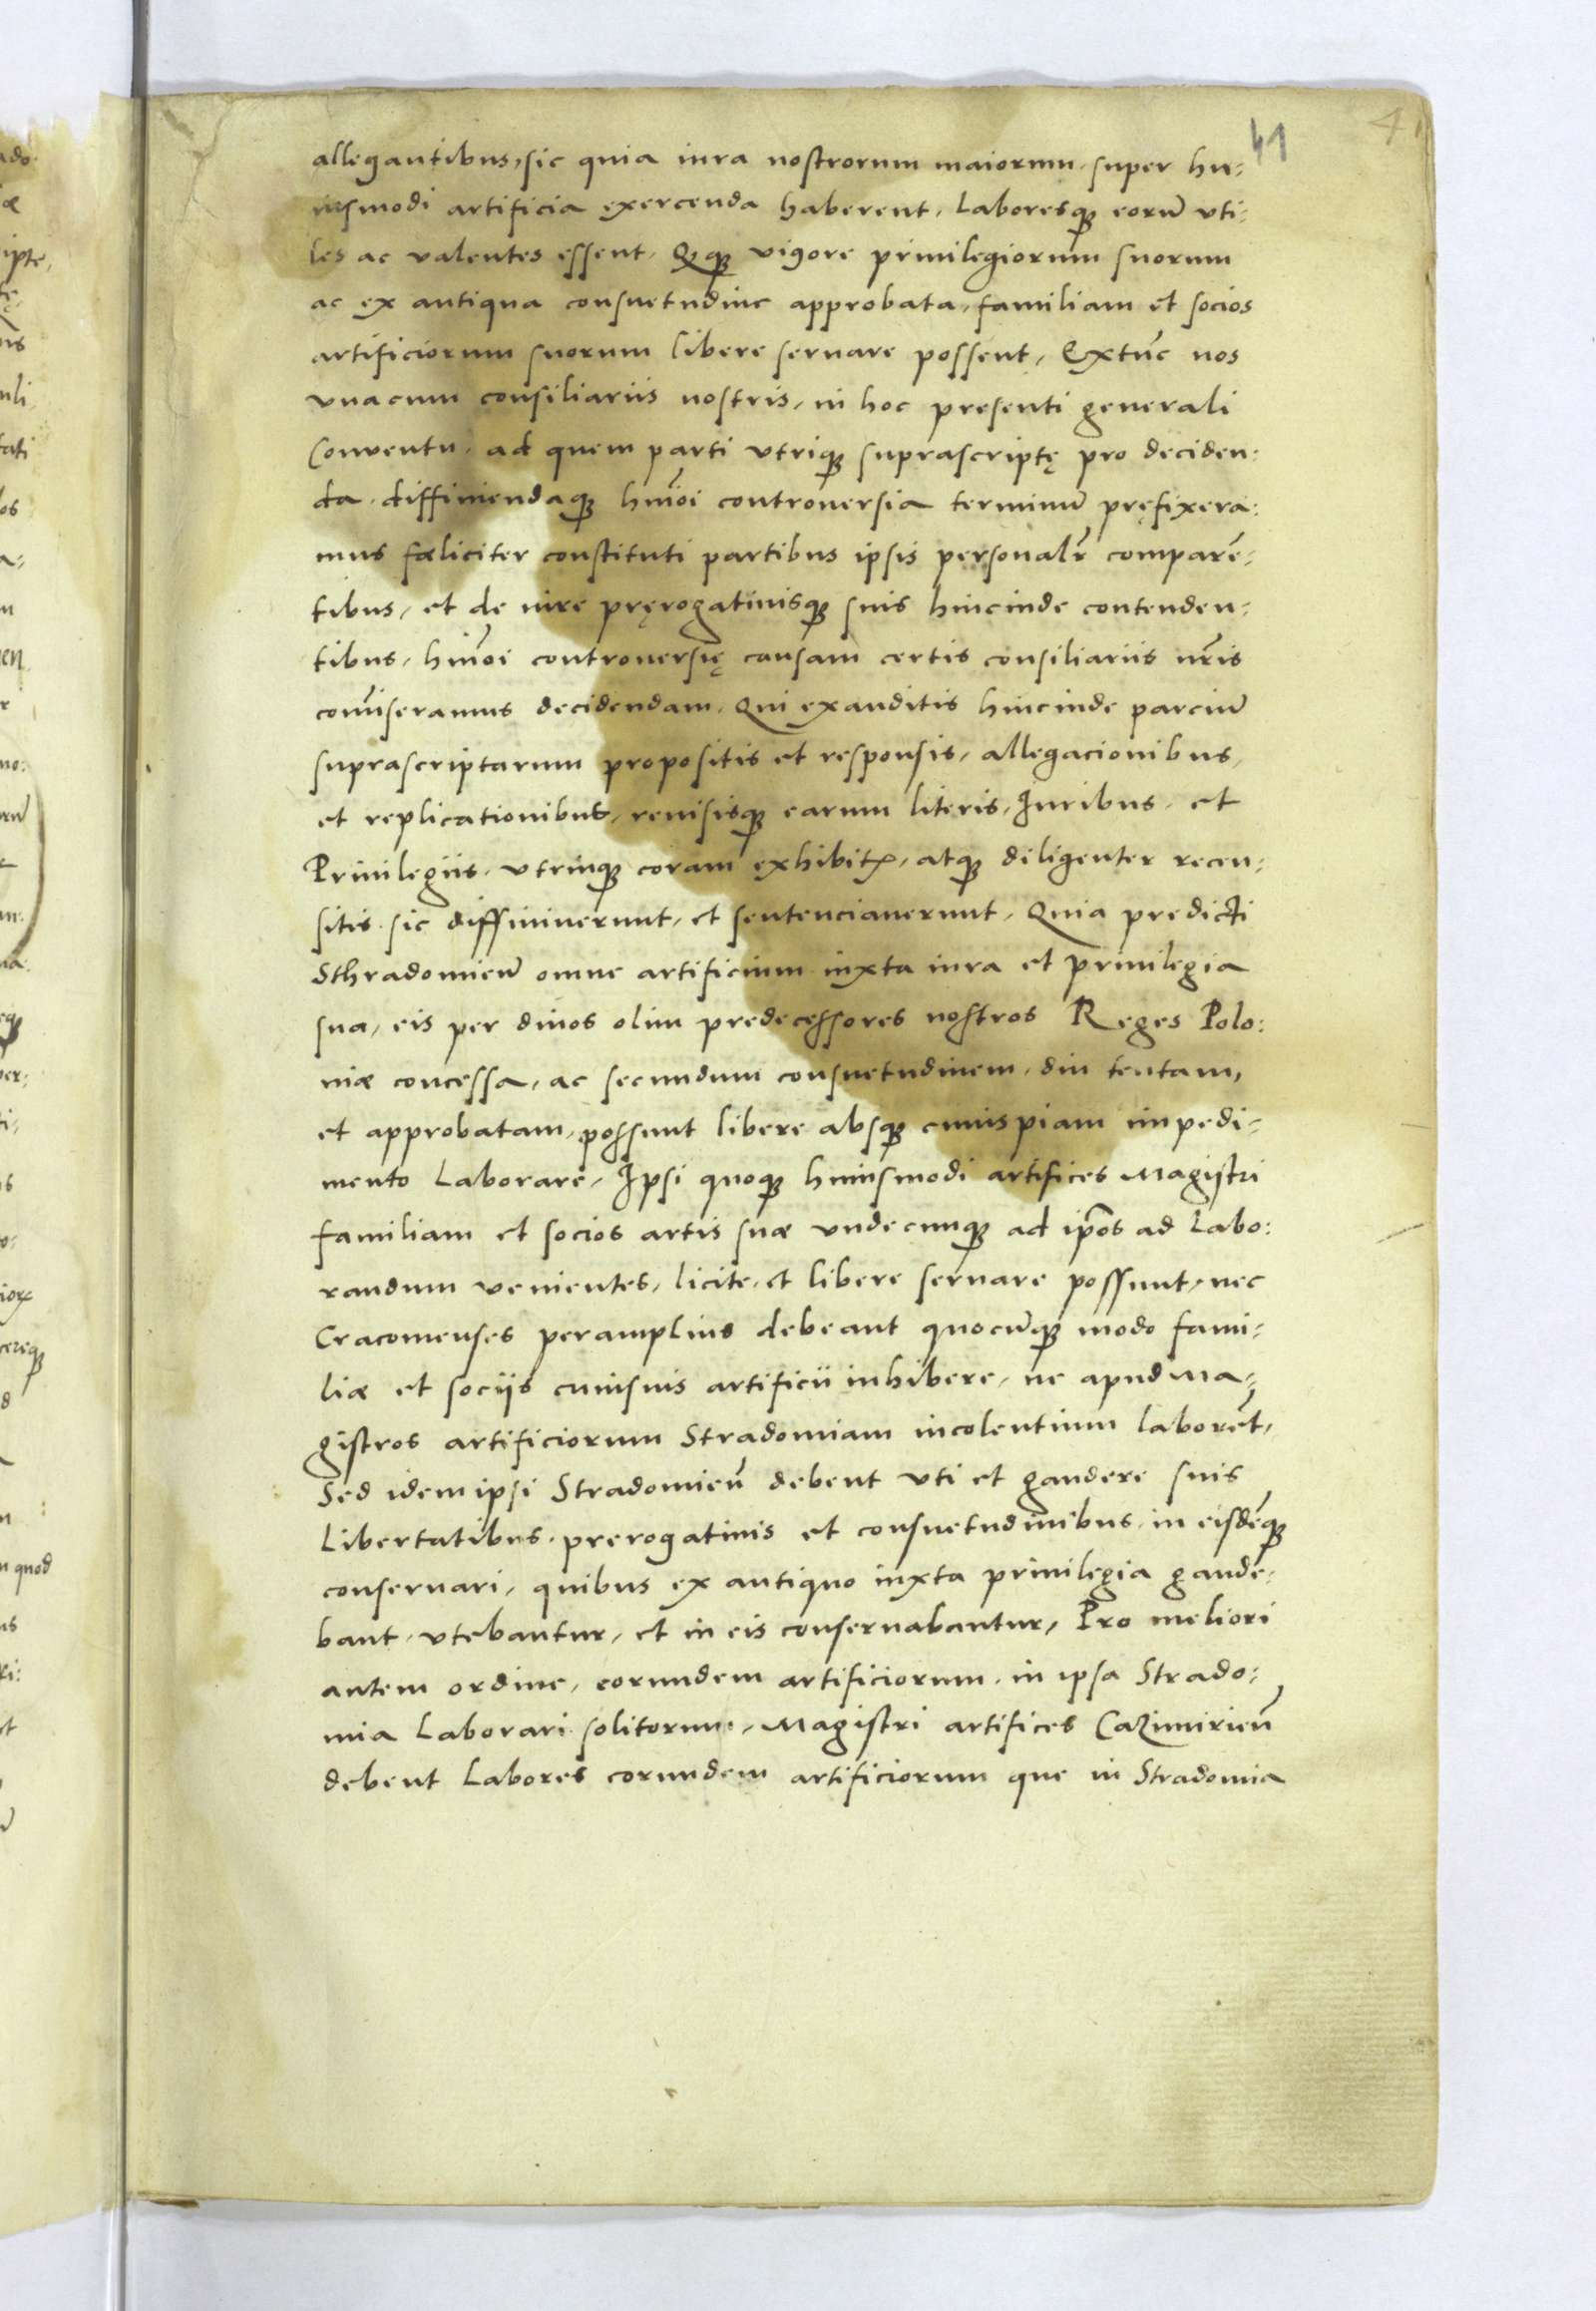 41
41
allegantibus, sic quia iura nostrorum maiorum super hu-
iusmodi artificia exercenda haberent, Laboresq́; eorū vti-
les ac valentes essent. Qq́; vigore priuilegiorum suorum
ac ex antiqua consuetudine approbata, familiam et socios
artificiorum suorum libere seruare possent, Extūc nos
vnacum consiliariis nostris, in hoc presenti generali
Conuentu, ad quem parti vtriq́; suprascriptę pro deciden:
da diffiniendaq́; hmōi controuersia terminū pręfixera:
mus fæliciter constituti partibus ipsis personalr̄ comparē-
tibus, et de iure pręrogatiuisq́; suis hincinde contenden-
tibus, hmōi controuersię causam certis consiliariis nr̄is
com̄iseramus decidendam. Qui exauditis hincinde parciū
suprascriptarum propositis et responsis, allegacionibus,
et replicationibus, reuisisq́; earum literis, Iuribus, et
Priuilegiis, vtrinq́; coram exhibitꝭ, atq́; diligenter recen-
sitis sic diffiniuerunt, et sentenciauerunt, Quia predicti
Sthradomień omne artificium iuxta iura et priuilegia
sua, eis per diuos olim predecessores nostros Reges Polo:
niæ concessa, ac secundum consuetudinem diu tentam,
et approbatam, possunt libere absq́; cuiuspiam impedi-
mento Laborare, Ipsi quoq́; huiusmodi artifices Magistri
familiam et socios artis suæ vndecunq́; ad ip̄os ad Labo:
randum venientes, licite, et libere seruare possunt, nec
Cracouienses peramplius debeant quocūq́; modo fami-
liæ et sociis cuiusuis artificii inhibere, ne apud Ma-
gistros artificiorum Stradomiam incolentium laborēt,
Sed idem ipsi Stradomień debent vti et gaudere suis
Libertatibus prerogatiuis et consuetudinibus, in eisdēq́;
conseruari, quibus ex antiquo iuxta priuilegia gaude-
bant, vtebantur, et in eis conseruabantur, Pro meliori
autem ordine, eorundem artificiorum in ipsa Strado:
mia Laborari solitorum, Magistri artifices Cazimirień
debent Labores eorundem artificiorum que in Stradomia